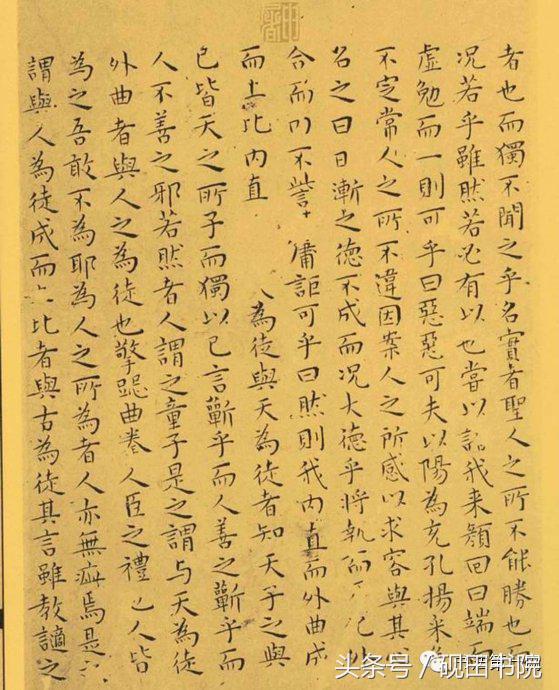 者也而獨不聞之乎名實者聖人之所不能勝也
况若乎雖然若必有以也嘗以語我来顏回曰端而
虚勉而一則可乎曰惡惡可夫以陽為充孔揚采
不定常人之所不違因案人之所感以求容與其
名之曰日漸之德不成而况大德乎將執而化
合而不訾庸詎可乎曰然則我内直而外曲成
而上比内直為徒與天為徒者知天子之與
已皆天之所子而獨以己言蘄乎而人善之蘄乎而
人不善之邪若然者人謂之童子是之謂与天為徒
外曲者與人之為徒也擎跽曲拳人臣之禮也人皆
為之吾敢不為耶為人之所為者人亦無疵焉是之
謂與人為徒成而上比者與古為徒其言雖教讁之
头条号 / 砚田书院